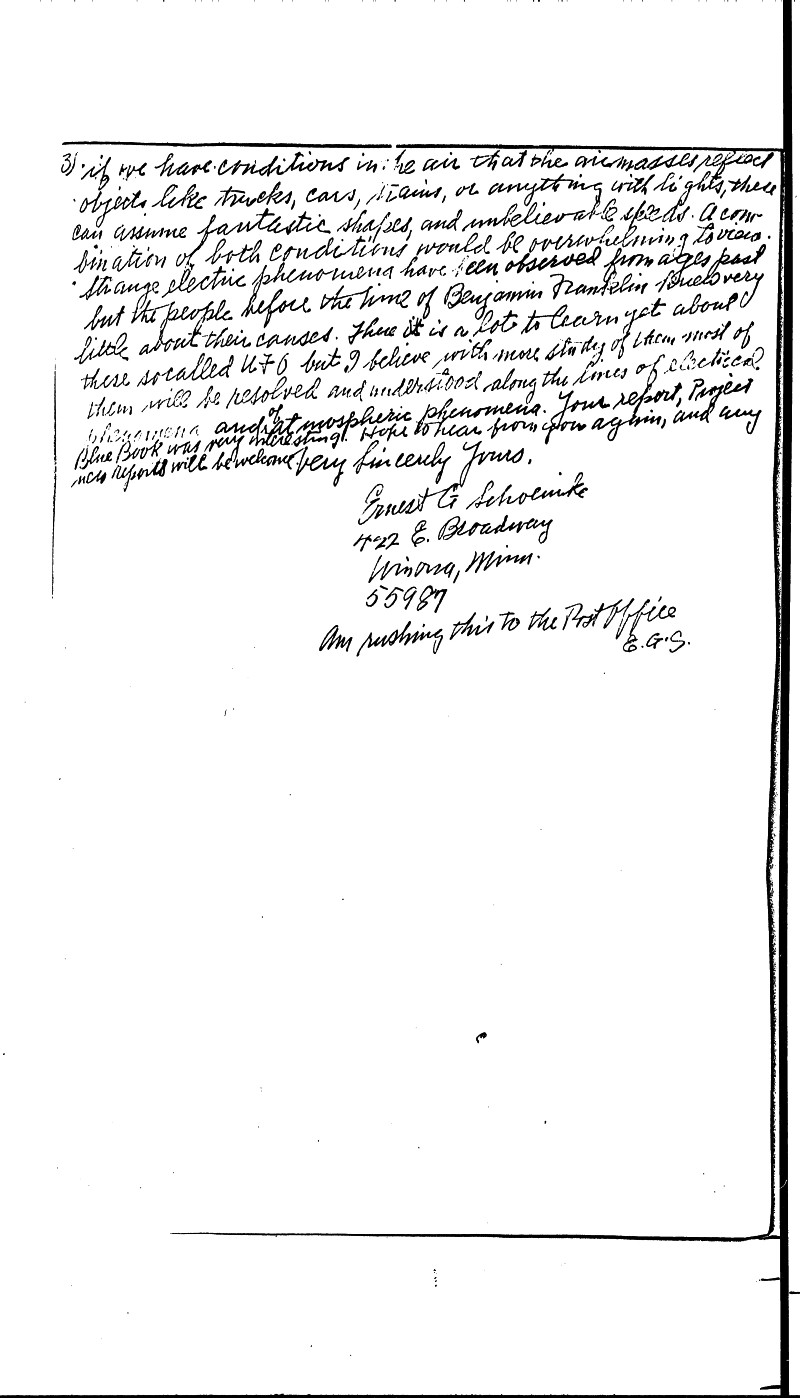 3) if we have conditions in the air that the air masses reflect
objects like trucks, cars, trains, or anything with lights, these
can assume fantastic shapes, and unbelievable speeds. A com-
bination of both conditions would be overwhelming to view.
Strange electric phenomena have been observed from ages past
but the people before the time of Benjamin Franklin knew very
little about their causes. There is a lot to learn yet about
these socalled UFO but I believe with more study of them most of
them will be resolved and understood along the lines of electrical
phenomena and of atmospheric phenomena. Your report, Project
Blue Book was very interesting. Hope to hear from you again, and any
new reports will be welcome. Very Sincerely Yours,
Ernest G Schoenike
422 E. Broadway
Winona, Minn.
55987
Am rushing this to the Post Office
E.G.S.